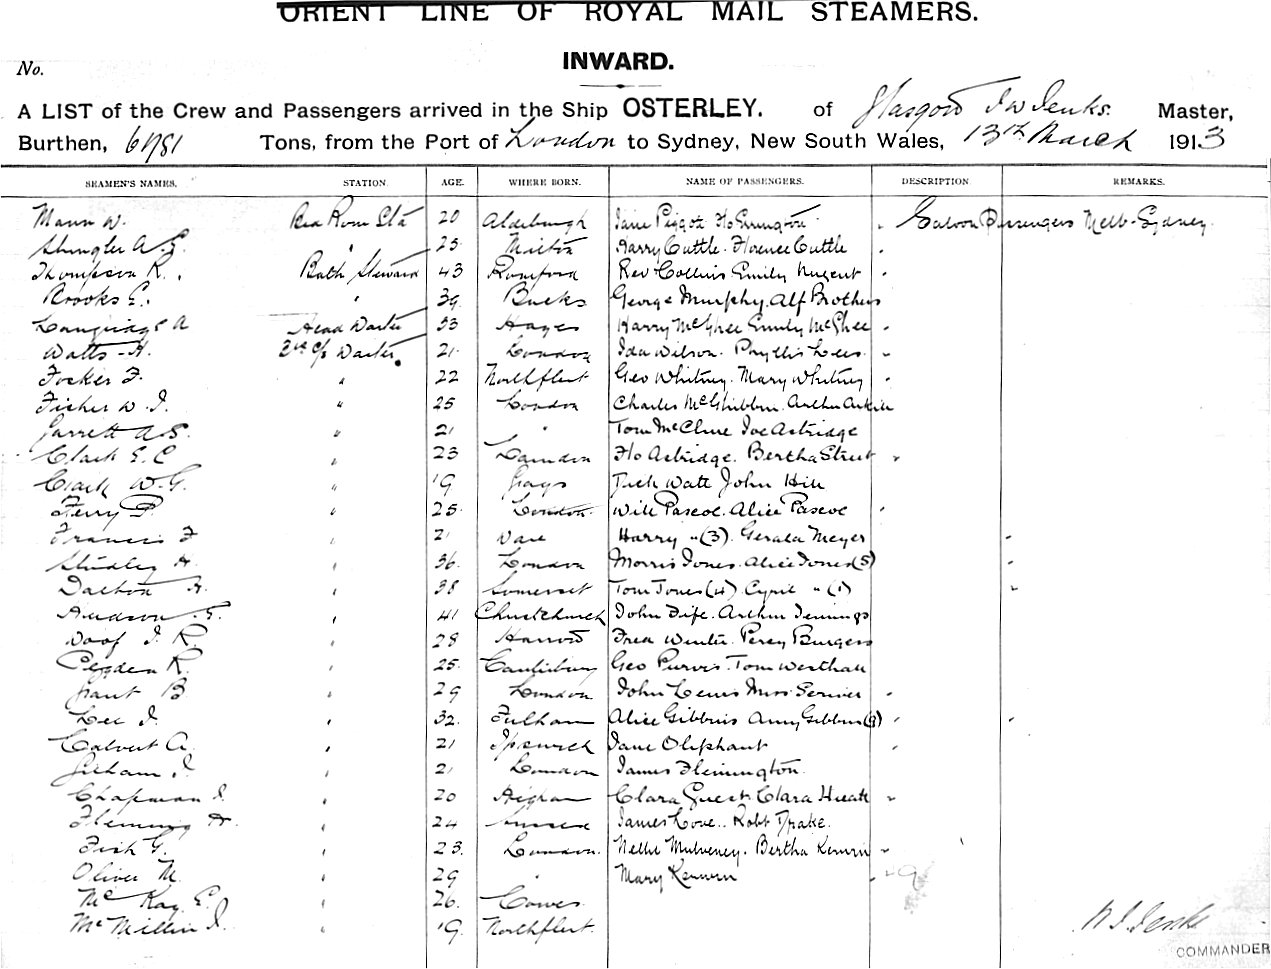 ORIENT LINE OF ROYAL MAIL STEAMERS.
INWARD.
No.
A LIST of the Crew and Passengers arrived in the Ship OSTERLEY. of Glasgow Jenks. Master,
Burthen, Tons, from the Port of London to Sydney, New South Wales, 13th March 1913
SEAMEN'S NAMES. STATION. AGE. WHERE BORN. NAME OF PASSENGERS. DESCRIPTION REMARKS.
Mann W. 20 Aldeburgh Saloon Passengers Melb-Sydney.
25 Milton Harry Cuttle. Florence Cuttle
Thompson R. Bath Steward 43 Romford Rev Collins Emily Nugent
Brooks E. " 39 Bucks George Murphy. Alf Brothers
Langridge A Head Waiter 33 Hayes Harry McGhee Emily McGhee
Watts H. Waiter 21 London Ida Wilson. Phyllis Lees
Focker F. " 22 Northfleet Geo Whitney. Mary Whitney
Fisher W. J. " 25 London Charles Arthur
Jarrett A.S. " 21 " Tom McClure Joe Astridge
Clark E. C " 23 Flo Astridge. Bertha Street
Clark W. G. " 19 Grays Watt John Hill
Ferry P. " 25 London Will Pascoe. Alice Pascoe
Francis F " 21 Ware Harry "(3). Gerald Meyer
H. " 36 London Morris Jones. Alice Jones (5)
Dalton H. " 38 Somerset Tom Jones (4) Cyril "(1)
Hudson. G. " 41 Christchurch John Fife. Arthur Jennings
Woof J. R. " 28 Harrow Fred Winter. Percy Burgess
Pegden R. " 25 Canterbury Geo Purvis. Tom Westhall
Grant B " 29 London John Lewis Miss
Lee J. " 32 Fulham Alice Gibbins Amy Gibbins (9)
Calvert A. " 21 Ipswich Jane Oliphant
Gilham J. " 21 London James Flemington.
Chapman J. " 20 Higham Clara Guest. Clara Heath
Fleming H. " 24 Sussex James Love.. Robt Drake.
Fish G. " 23 London. Nellie Mulveney. Bertha Kerwin
Oliver M. " 29 " Mary Kerwin
McKay E. " 26 Cowes
McMillin J. " 19 Northfleet.
Jenks
COMMANDER